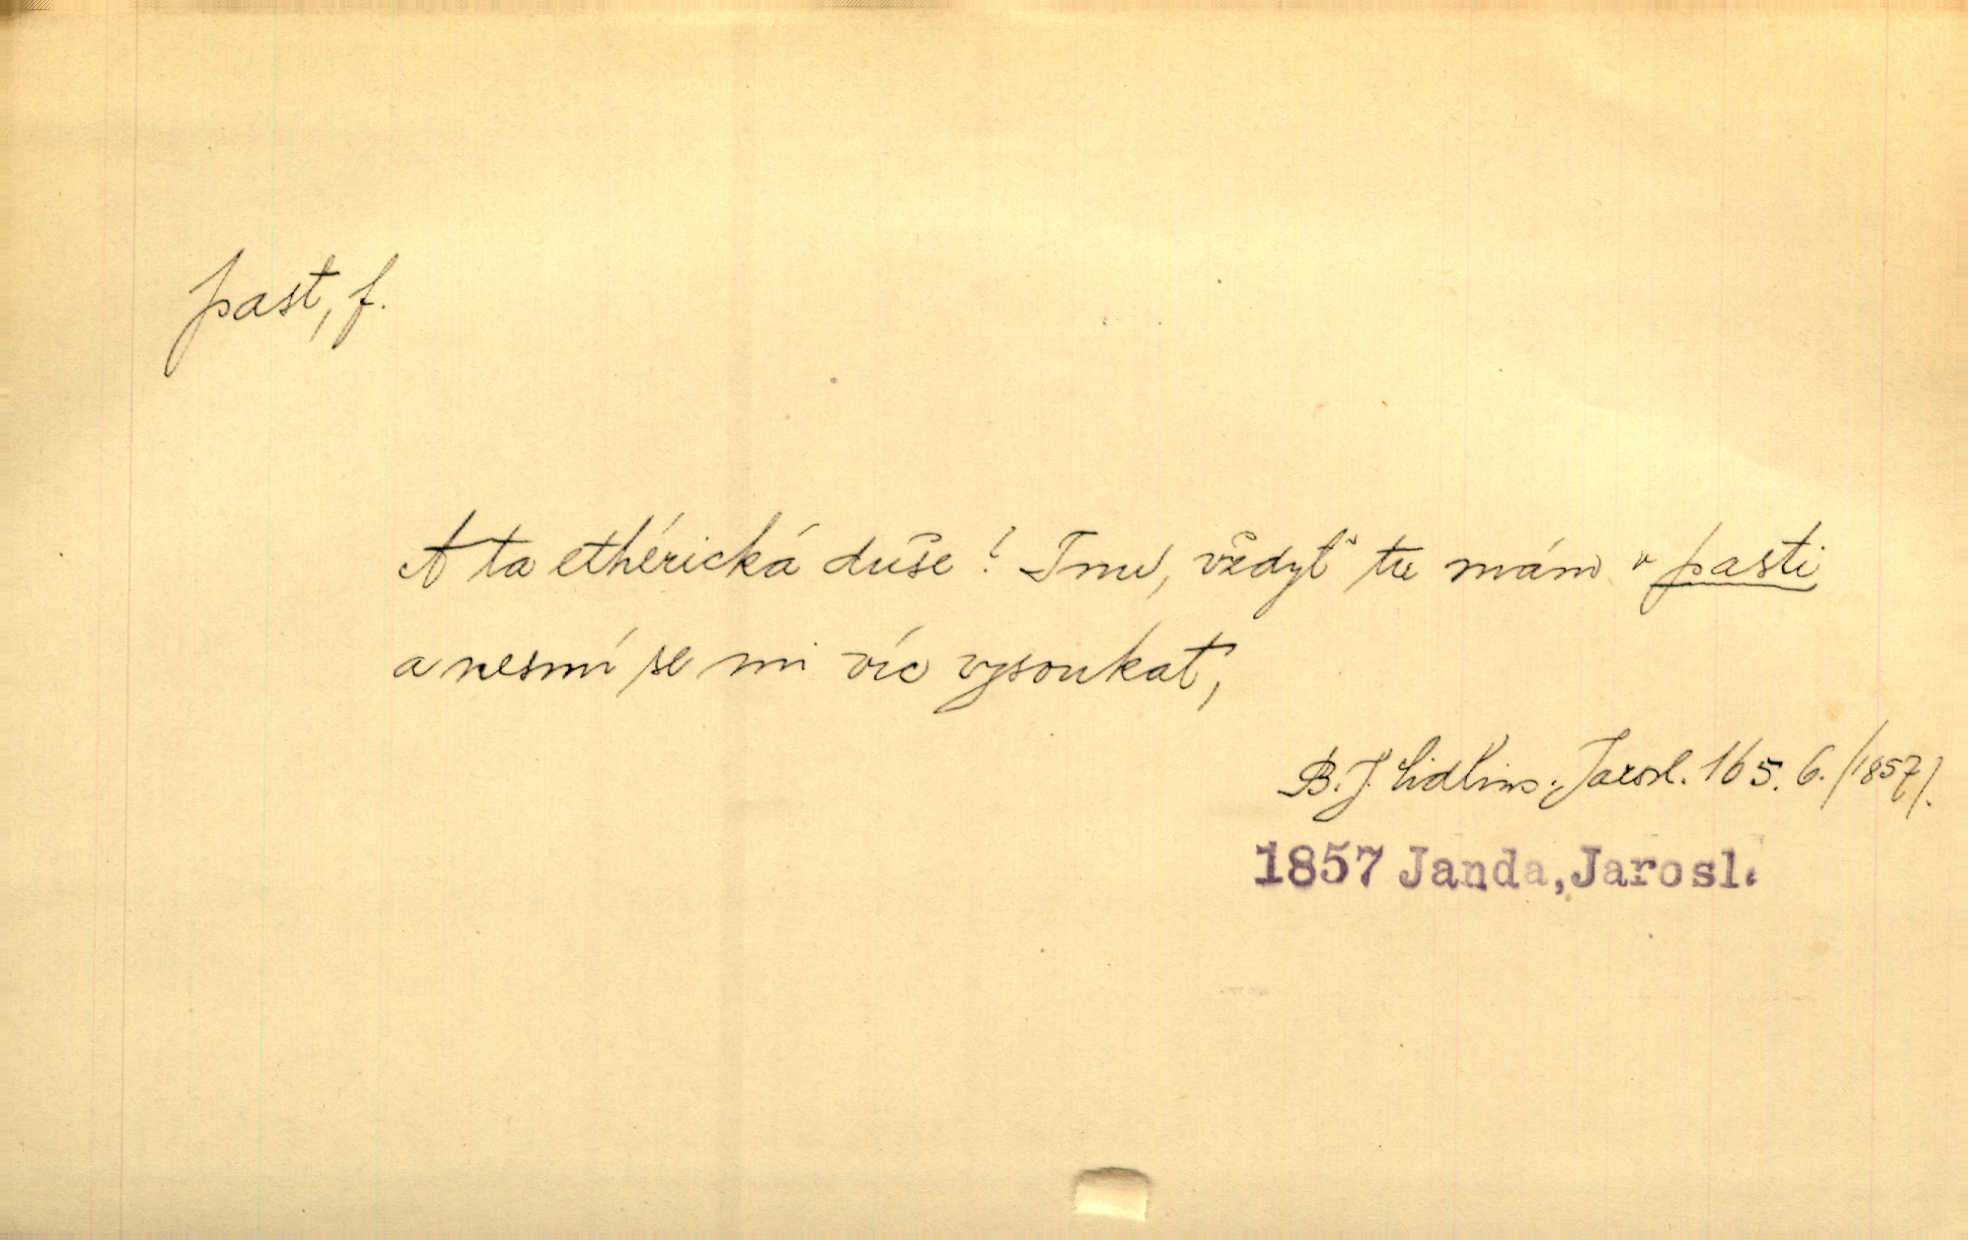 past, f.
A ta ethérická duše! Inu, vždyť tu mám v pasti
a nesmí se mi víc vysoukat,
B. J. Cidlins. Jarosl. 165. 6. /1857/.
1857 Janda, Jarosl.